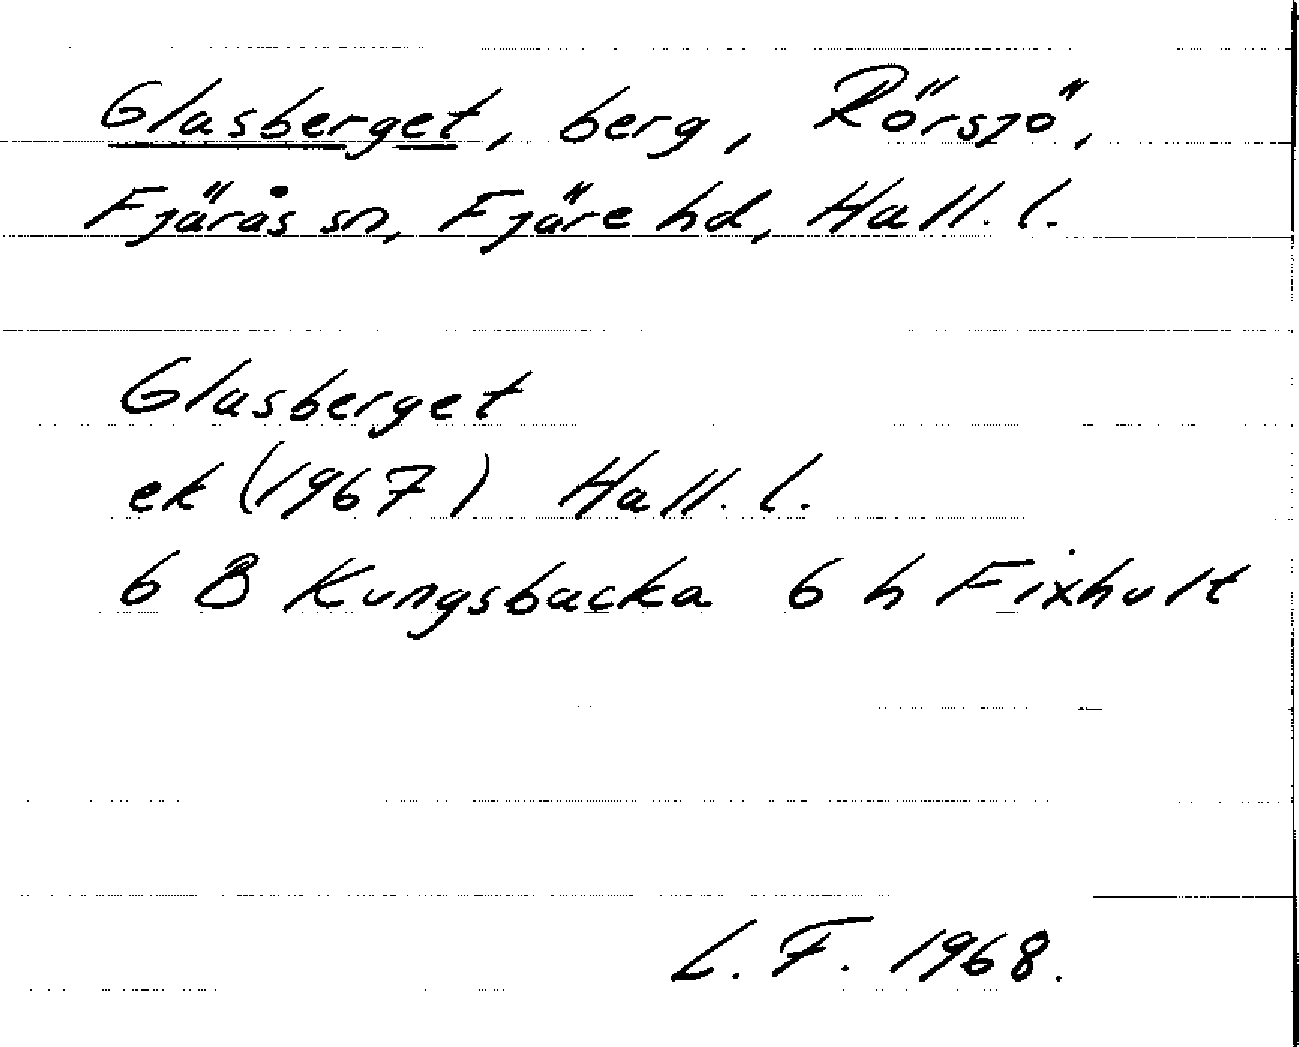 Glasberget, berg, Rörsjö,
Fjärås sn, Fjäre hd, Hall. l.
Glasberget
ek (1967) Hall. l.
6 B Kungsbacka 6 h Fixhult
L. F. 1968.